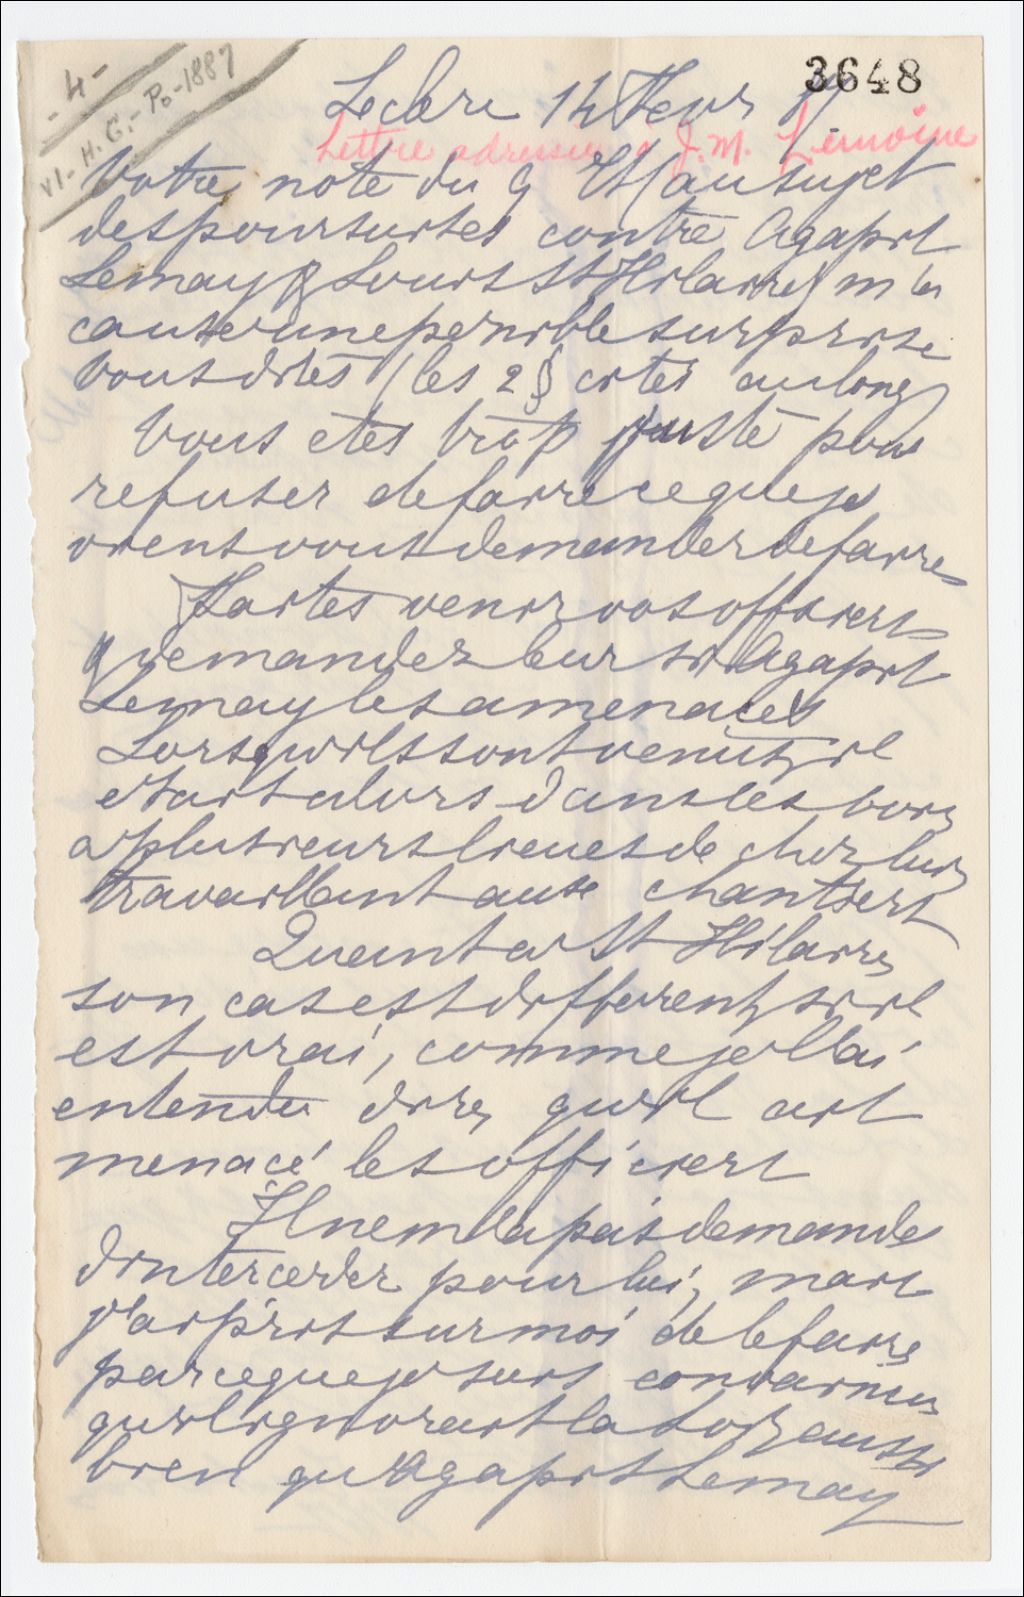 3648
- 4 -
VI.-H.G.-Po-1887
Leclere 14 Fevr
Lettre adressée à J. M. Lemoine
Votre note du 9 Et/ au sujet
des poursuites contre Agapit
Lemay & Louis St Hilaire, m'a
cause une penible surprise
Vous dites (les 2 § cités au long)
Vous etes trop juste pour
refuser de faire ce que je
viens vous demander de faire
Faites venir vos officiers
& demandez leur si Agapit
Lemay les a menacés
Lorsqu'ils sont venus, il
etait alors dans les bois
a plusieurs lieues de chez lui,
travaillant aux chantiers
Quant a St Hilaire,
son cas est different, s'il
est vrai, comme je l'ai
entendu dire, qu'il ait
menacé les officiers
Il ne m'a pas demande
d'interceder pour lui, mais
j'ai pris sur moi de le faire
parce que je suis convaincu
qu'il ignorait la loi, aussi
bien qu'Agapit Lemay